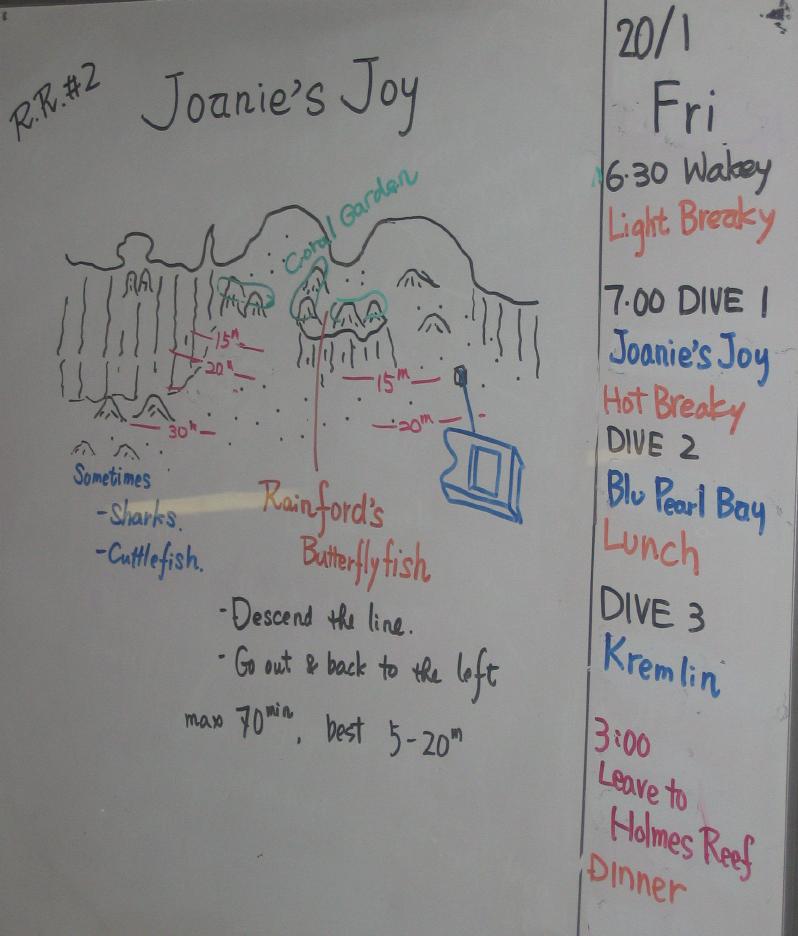 R.R.#2
Joanie's Joy
Coral Garden
15m
20m
30m
15m
20m
Sometimes
- Sharks.
- Cuttlefish.
Rainford's
Butterflyfish
- Descend the line.
- Go out & back to the left
max 70min, best 5-20m
20/1
Fri
6.30 Wakey
Light Breaky
7.00 DIVE 1
Joanie's Joy
Hot Breaky
DIVE 2
Blu Pearl Bay
Lunch
DIVE 3
Kremlin
3:00
Leave to
Holmes Reef
Dinner